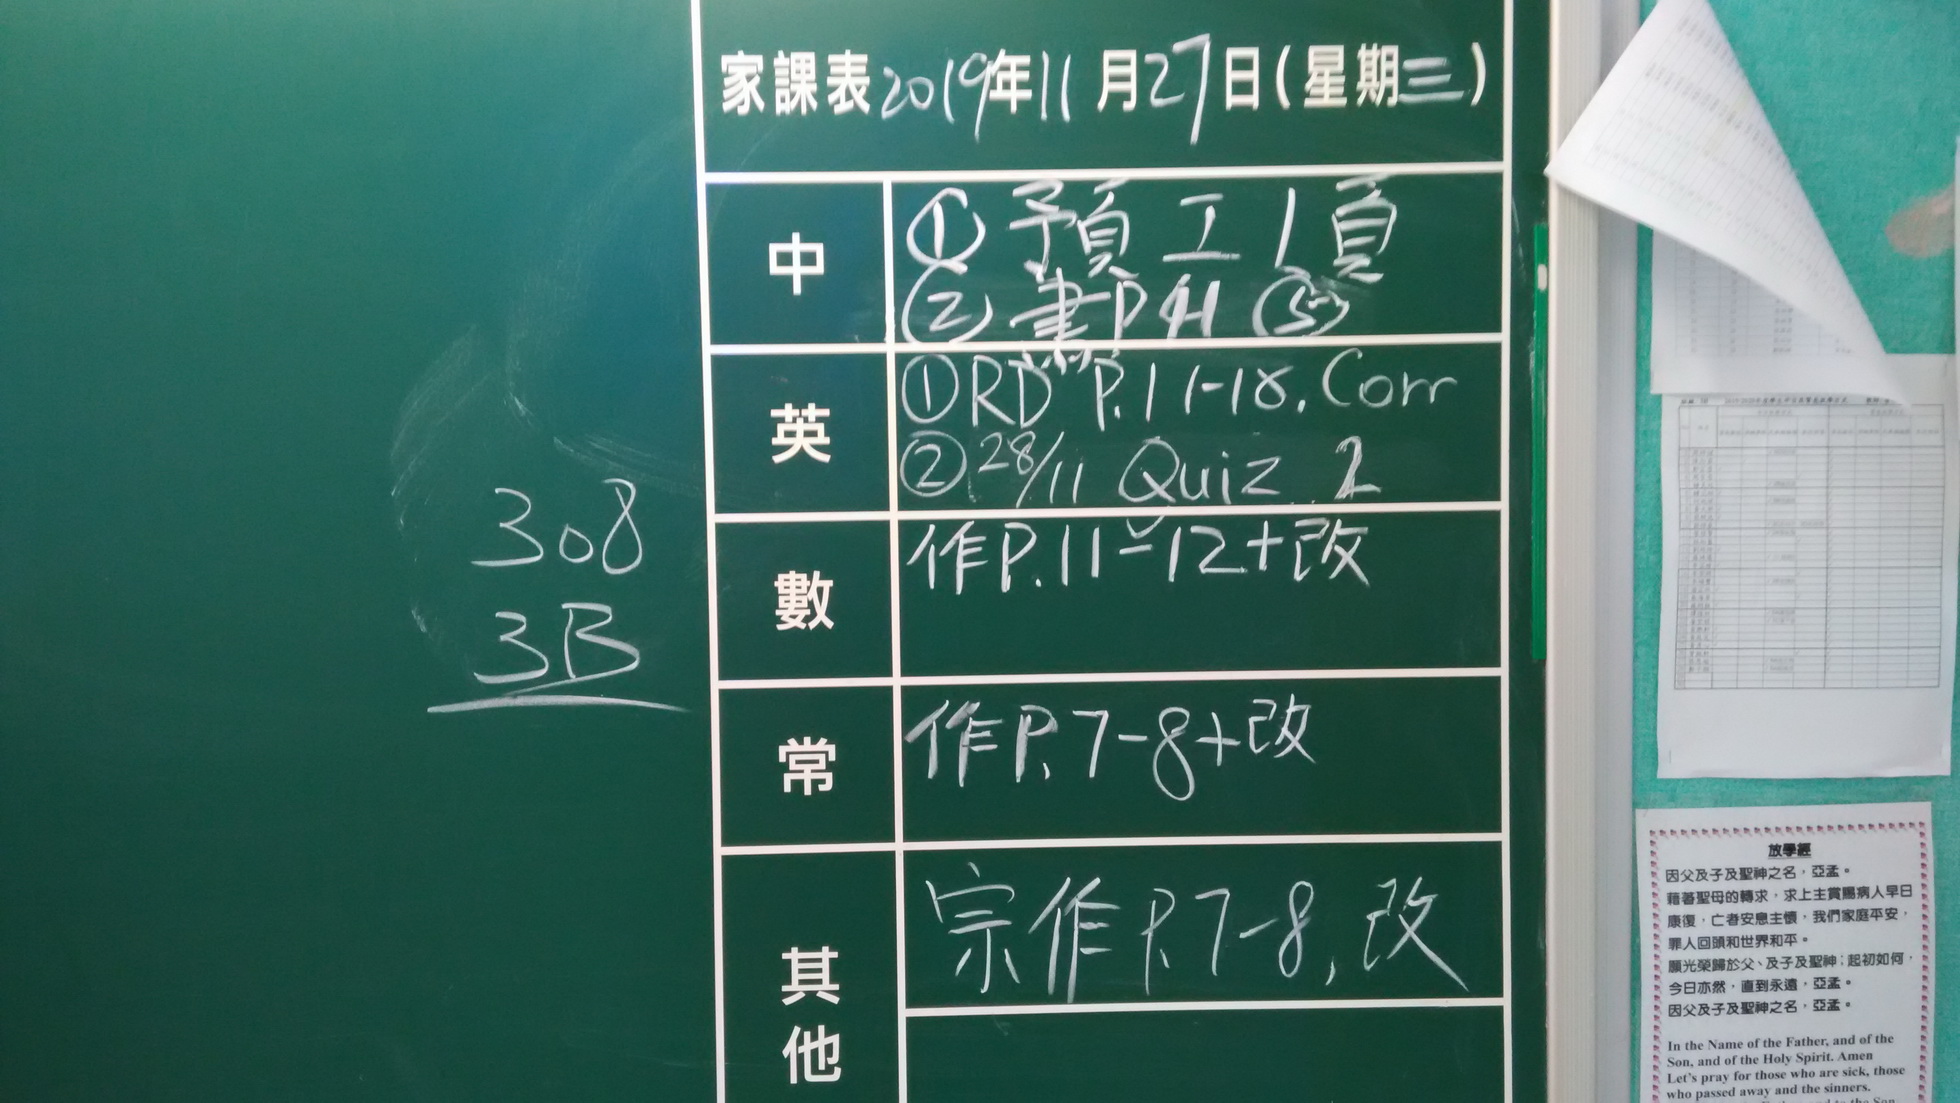 家課表2019年11月27日(星期三)
中
① 預工1頁
② 書P41 ⑤
英
①RD P.11-18. Corr
②28/11 Quiz 2
數
作P.11-12+改
常
作P.7-8+改
其他
宗作P.7-8,改
308
3B
放學經
因父及子及聖神之名，亞孟。
藉著聖母的轉求，求上主賞賜病人早日
康復，亡者安息主懷，我們家庭平安，
罪人回頭和世界和平。
願光榮歸於父、及子及聖神；起初如何，
今日亦然，直到永遠，亞孟。
因父及子及聖神之名，亞孟。
In the Name of the Father, and of the
Son, and of the Holy Spirit. Amen
Let's pray for those who are sick, those
who passed away and the sinners.